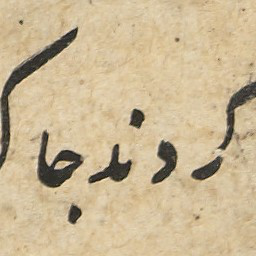 کردند جا